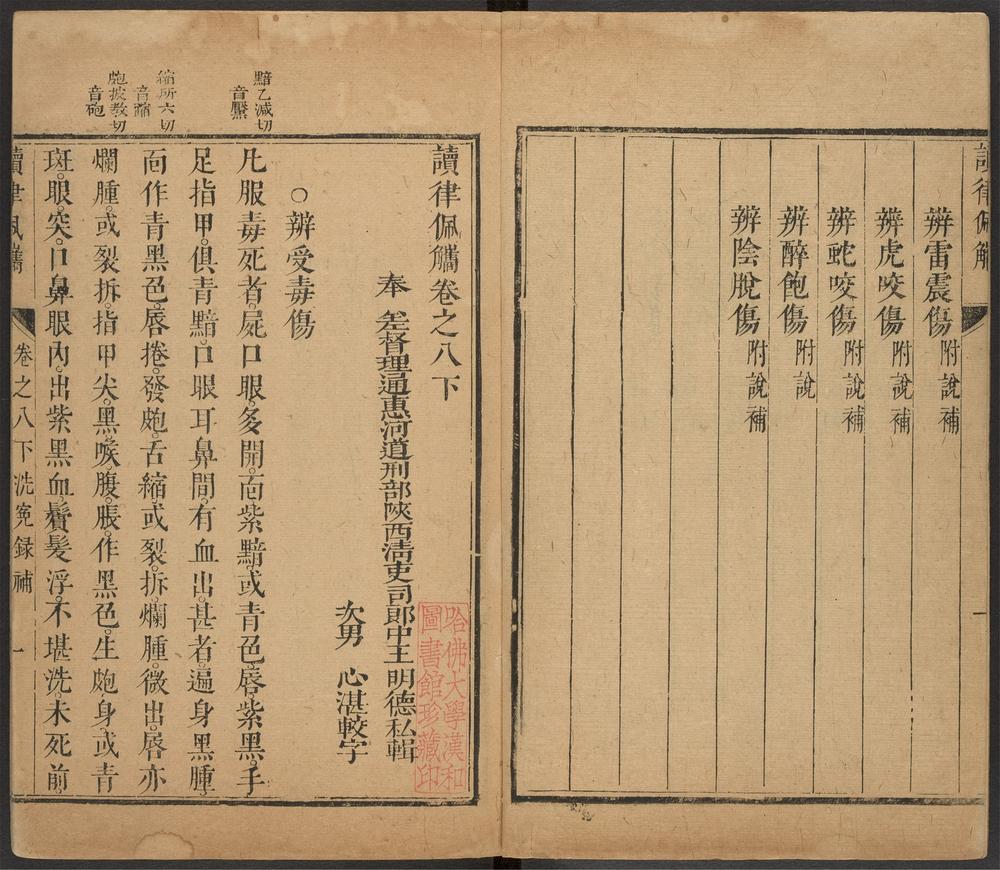 讀律佩觿
辨雷震傷附說補
辨虎咬傷附說補
辨蛇咬傷附說補
辨醉飽傷附說
辨陰脫傷附說補
讀律佩觿卷之八下
奉 差督理通惠河道刑部陝西清吏司郎中王明德私輯
次男 心湛較字
哈佛大學漢和
圖書館珍藏印
○辨受毒傷
黯乙減切
音黶
凡服毒死者。屍口眼。多開。靣紫黯。或青色。唇紫黑。手
足指甲。俱青黯。口眼耳鼻間。有血出。甚者。遍身黑腫。
縮所六切
音蹜
靣作青黑色。唇捲。發皰。舌縮。或裂拆。爛腫。微出。唇亦
皰披教切
音砲
爛腫。或裂拆。指甲尖。黑喉腹。脹作黑色。生皰。身或青
斑。眼突。口鼻眼內。出紫黑血。鬚髮浮。不堪洗。未死前。
讀律佩觿
卷之八下洗冤録補
一